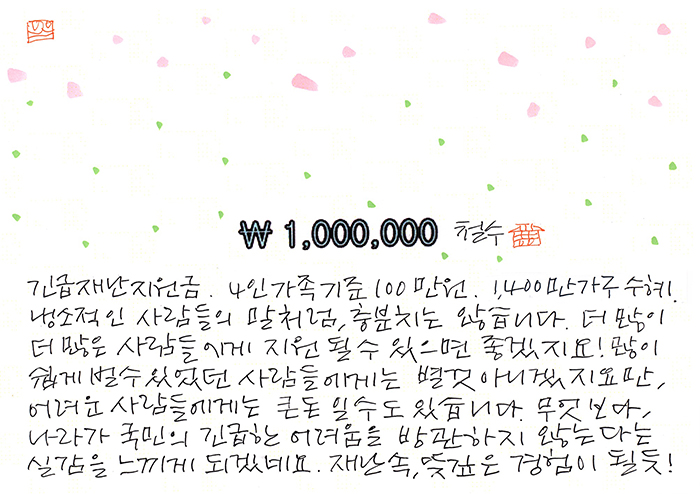 ₩ 1,000,000 철수
긴급재난지원금. 4인가족기준 100만원. 1,400만가구 수혜.
냉소적인 사람들의 말처럼, 충분치는 않습니다. 더 많이
더 많은 사람들에게 지원 될 수 있으면 좋겠지요! 많이
쉽게 벌 수 있었던 사람들에게는 별것 아니겠지요만,
어려운 사람들에게는 큰돈 일 수도 있습니다. 무엇보다,
나라가 국민의 긴급한 어려움을 방관하지 않는다는
실감을 느끼게 되겠네요. 재난 속, 뜻깊은 경험이 될 듯!